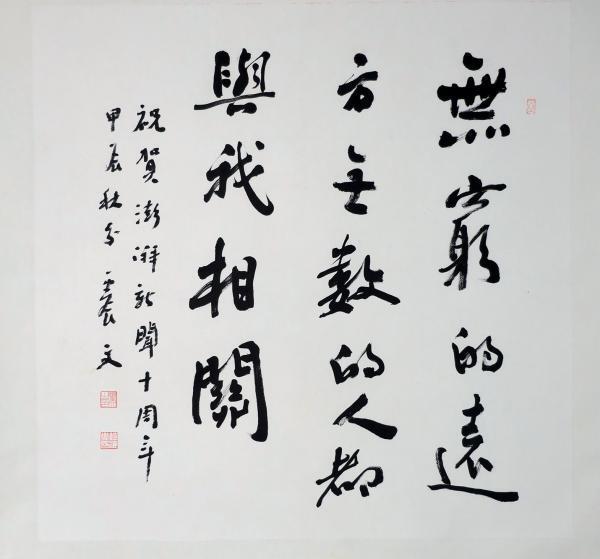 無窮的遠
方无数的人都
與我相關
祝賀澎湃新聞十周年
甲辰秋分 震文